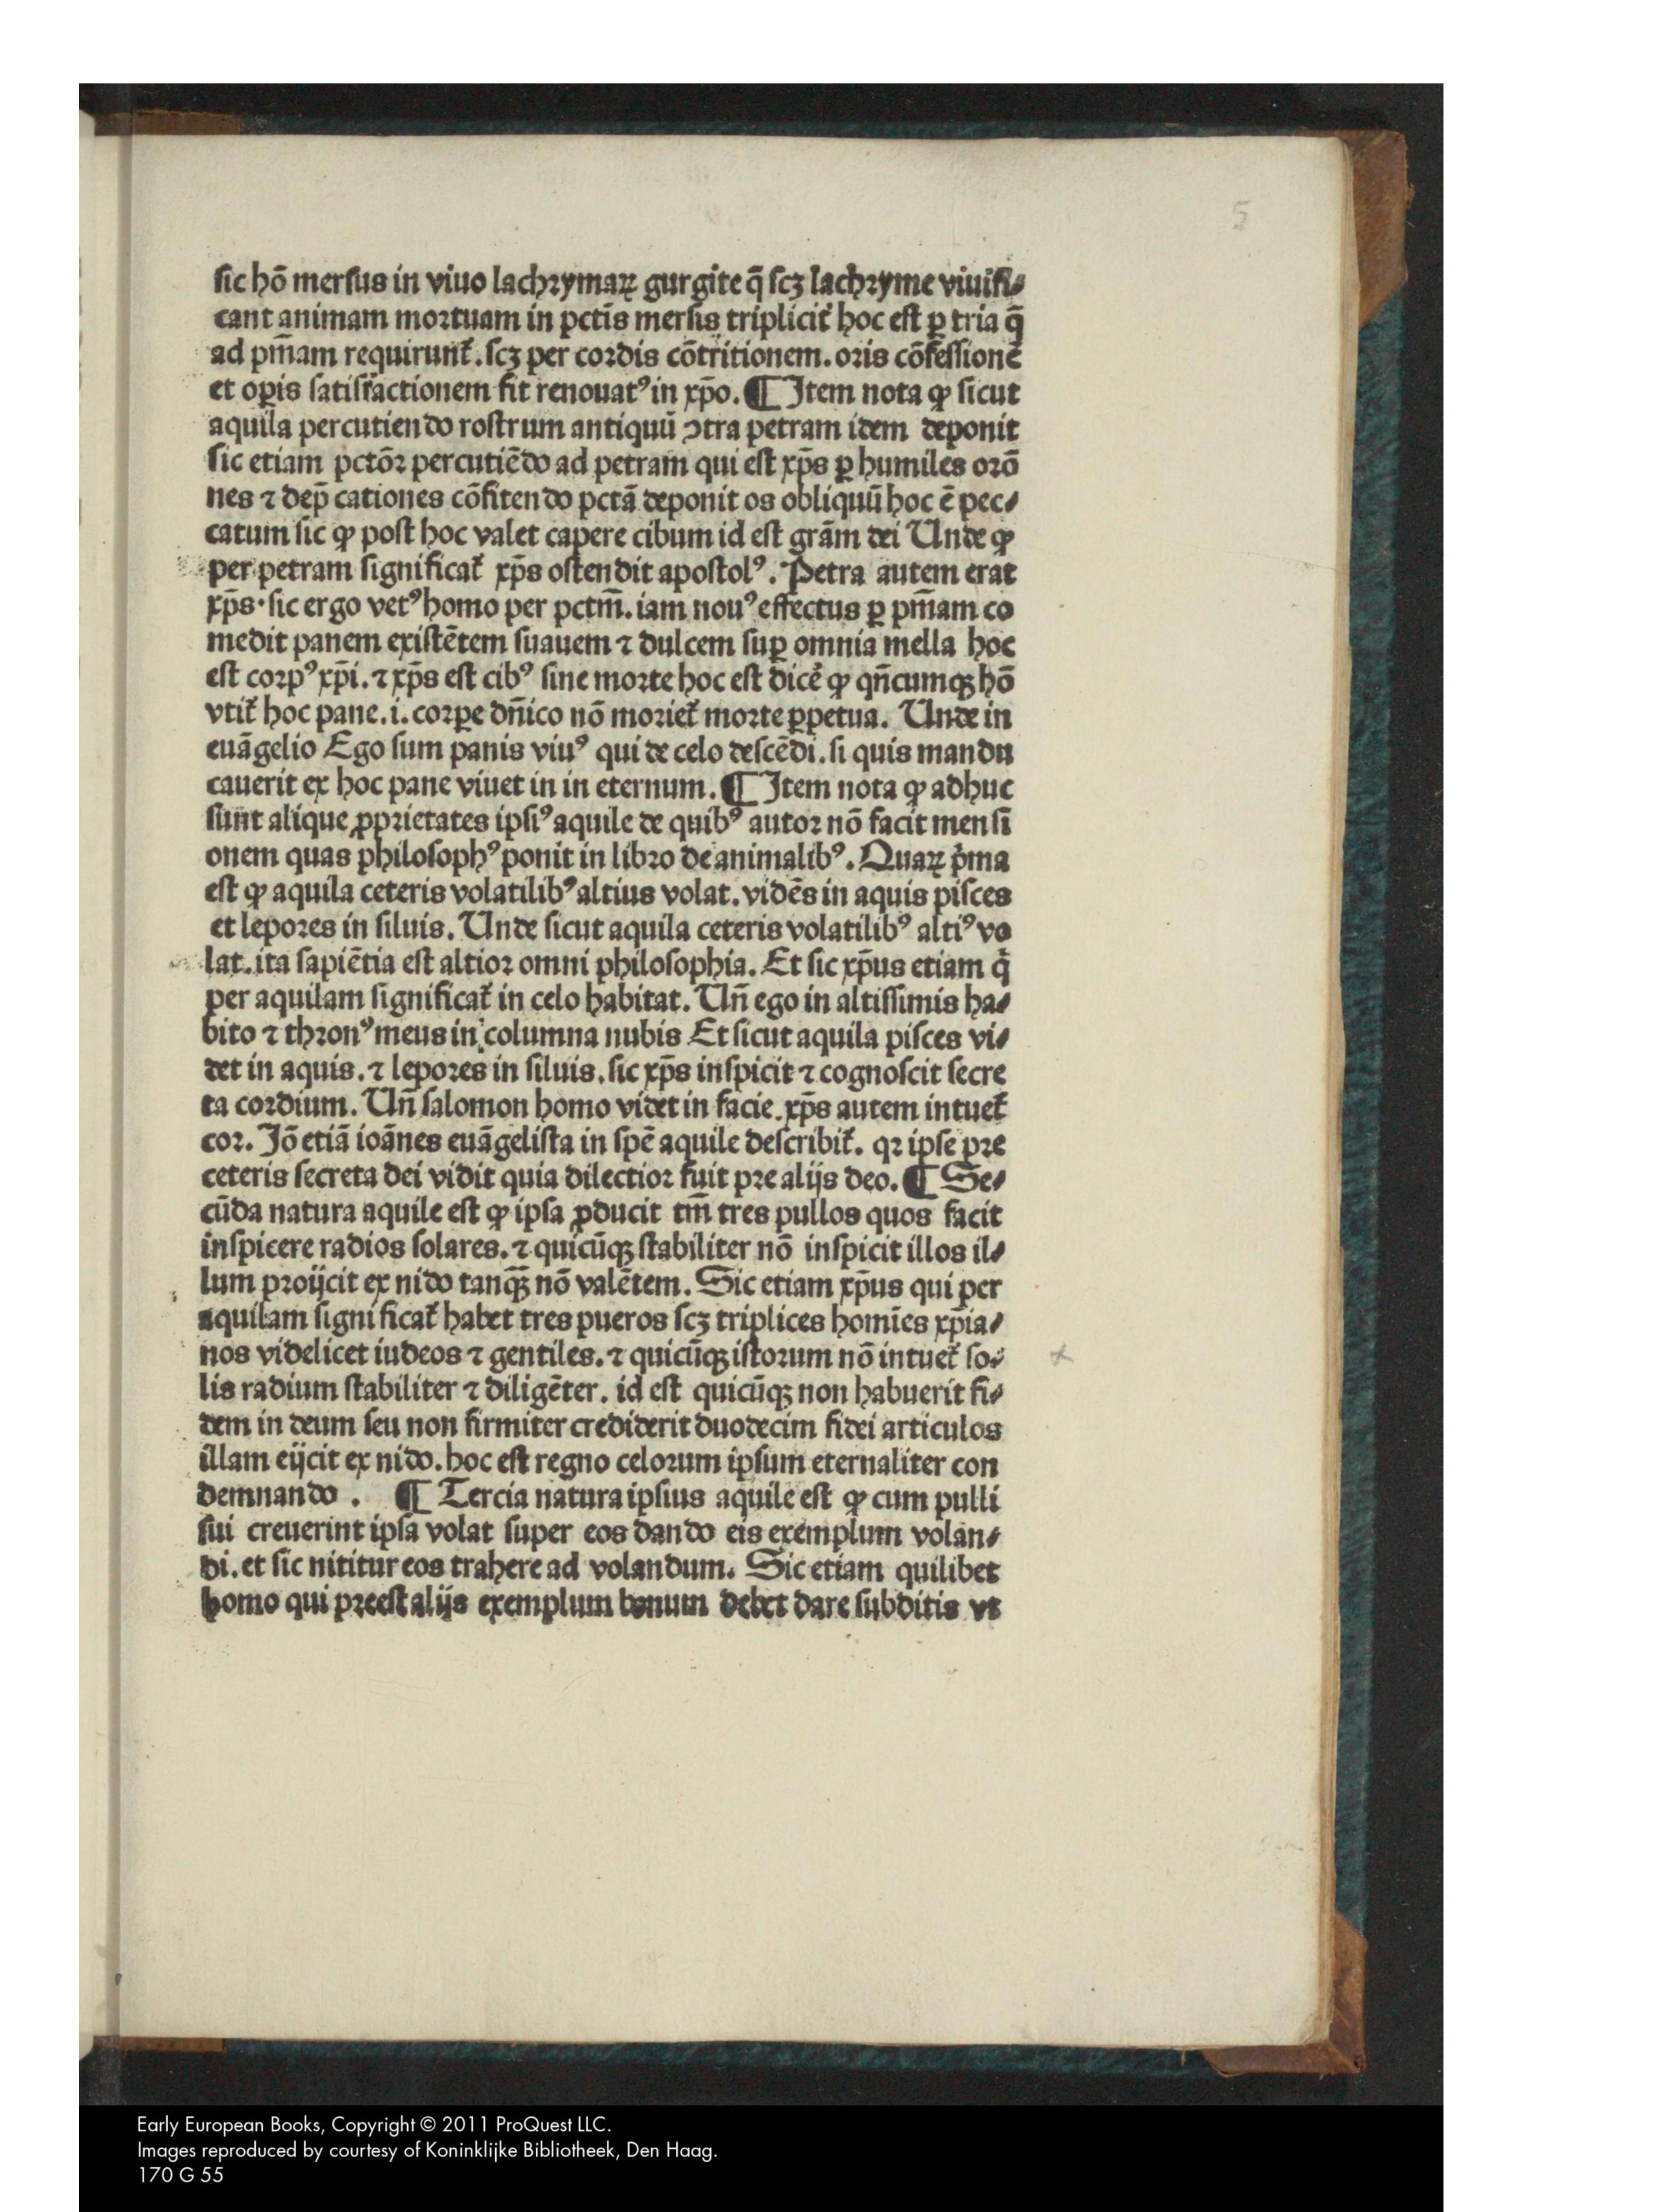 5
sic hō mersus in viuo lachrymaꝝ gurgite q̄ scꝫ lachryme viuifi⸗
cant animam mortuam in pctīs mersis triplicit̄ hoc est ꝑ tria q̄
ad pm̄am requirunt̄. scꝫ per cordis cōtritionem. oris cōfessionē
et oꝑis satisfactionem fit renouatꝰ in xp̄o. ¶ Item nota ꝙ sicut
aquila percutiendo rostrum antiquū ꝯtra petram idem deponit
sic etiam pctōr percutiēdo ad petram qui est xp̄s ꝑ humiles orō
nes ⁊ dep̄cationes cōfitendo pctā deponit os obliquū hoc ē pec⸗
catum sic ꝙ post hoc valet capere cibum id est grām dei Unde ꝙ
per petram significat̄ xp̄s ostendit apostolꝰ. Petra autem erat
xp̄s. sic ergo vetꝰ homo per pctm̄. iam nouꝰ effectus ꝑ pm̄am co
medit panem existētem suauem ⁊ dulcem suꝑ omnia mella hoc
est corpꝰ xp̄i. ⁊ xp̄s est cibꝰ sine morte hoc est dicē ꝙ qn̄cumqꝫ hō
vtit̄ hoc pane .i. corꝑe dn̄ico nō moriet̄ morte ꝑpetua. Unde in
euāgelio Ego sum panis viuꝰ qui de celo descēdi. si quis mandu
cauerit ex hoc pane viuet in in eternum. ¶ Item nota ꝙ adhuc
sunt alique ꝓprietates ipsiꝰ aquile de quibꝰ autor nō facit mensi
onem quas philosophꝰ ponit in libro de animalibꝰ. Quaꝝ pͥma
est ꝙ aquila ceteris volatilibꝰ altius volat. vidēs in aquis pisces
et lepores in siluis. Unde sicut aquila ceteris volatilibꝰ altiꝰ vo
lat. ita sapiētia est altior omni philosophia. Et sic xp̄us etiam qͥ
per aquilam significat̄ in celo habitat. Un̄ ego in altissimis ha⸗
bito ⁊ thronꝰ meus in columna nubis Et sicut aquila pisces vi⸗
det in aquis. ⁊ lepores in siluis. sic xp̄s inspicit ⁊ cognoscit secre
ta cordium. Un̄ salomon homo videt in facie. xp̄s autem intuet̄
cor. Iō etiā ioānes euāgelista in spē aquile describit̄. qꝛ ipse pre
ceteris secreta dei vidit quia dilectior fuit pre alijs deo. ¶ Se⸗
cūda natura aquile est ꝙ ipsa ꝓducit tm̄ tres pullos quos facit
inspicere radios solares. ⁊ quicūqꝫ stabiliter nō inspicit illos il⸗
lum proijcit ex nido tanqꝫ̄ nō valētem. Sic etiam xp̄us qui per
aquilam significat̄ habet tres pueros scꝫ triplices homīes xp̄ia⸗
nos videlicet iudeos ⁊ gentiles. ⁊ quicūqꝫ istorum nō intuet̄ so⸗
lis radium stabiliter ⁊ diligēter. id est quicūqꝫ non habuerit fi⸗
dem in deum seu non firmiter crediderit duodecim fidei articulos
illam eijcit ex nido. hoc est regno celorum ipsum eternaliter con
demnando. ¶ Tercia natura ipsius aquile est ꝙ cum pulli
sui creuerint ipsa volat super eos dando eis exemplum volan⸗
di. et sic nititur eos trahere ad volandum. Sic etiam quilibet
homo qui preest alijs exemplum bonum debet dare subditis vt
Early European Books, Copyright © 2011 ProQuest LLC.
Images reproduced by courtesy of Koninklijke Bibliotheek, Den Haag.
170 G 55